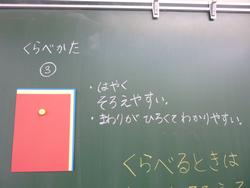 くらべかた
③
・はやく
そろえやすい。
・まわりがひろくてわかりやすい。
くらべるときは